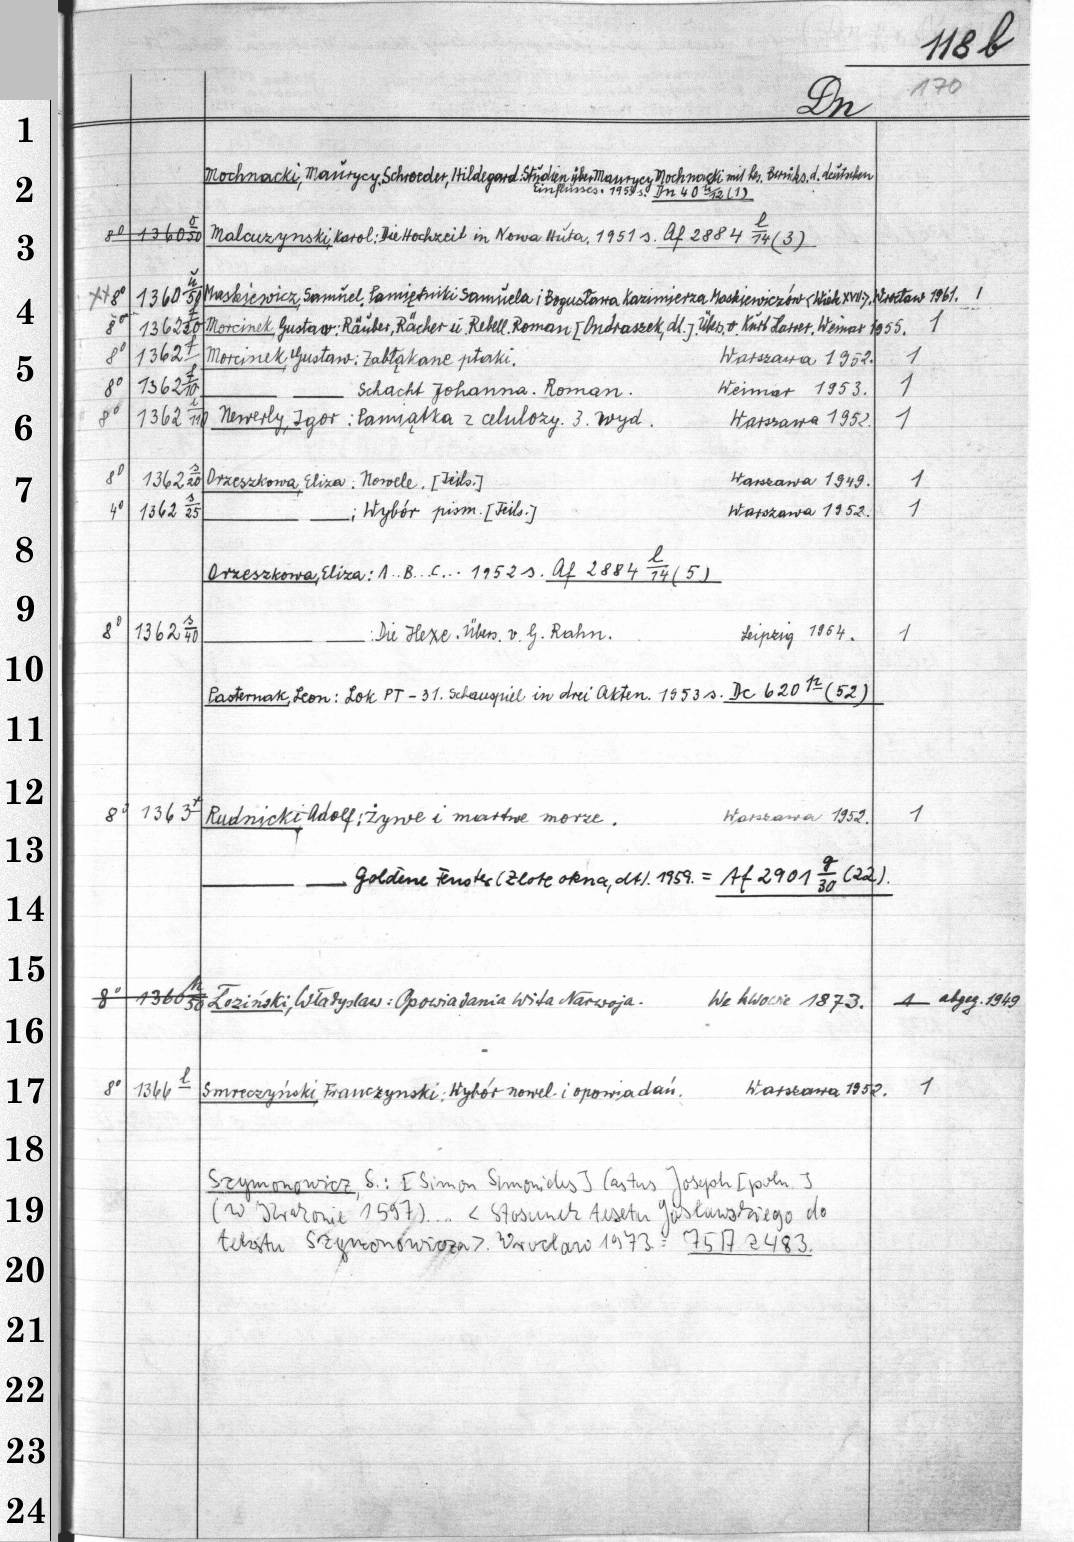 118 b
170
Dn
1
2
3
4
5
6
7
8
9
10
11
12
13
14
15
16
17
18
19
20
21
22
23
24
Mochnacki, Maurycy. Schroeder, Hildegard: Studien über Maurycy Mochnacki mit bes. Berücks. d. deutschen
Einflusses. 1953 s. Dn 40 u/12 (1)
8° 1360 o/50 Malcuzynski, Karol: Die Hochzeit in Nowa Huta. 1951 s. Af 2884 l/14 (3)
8° 1360 u/50 Maskiewicz, Samuel, Pamiętniki Samuela i Bogusława Kazimierza Maskiewiczów <Wiek XVII>. Wrocław 1961. 1
8° 1362 Morcinek, Gustaw: Räuber, Rächer u. Rebell. Roman [Ondraszek, dt.]. Übers. v. Kurt Harrer. Weimar 1955. 1
8° 1362 f Morcinek, Gustaw: Zabłąkane ptaki. Warszawa 1952. 1
8° 1362 f/10 — — Schacht Johanna. Roman. Weimar 1953. 1
8° 1362 Newerly, Igor: Pamiątka z celulozy. 3. wyd. Warszawa 1952. 1
8° 1362 s/20 Orzeszkowa, Eliza: Nowele. [Teils.] Warszawa 1949. 1
4° 1362 s/25 — —; Wybór pism. [Teils.] Warszawa 1952. 1
Orzeszkowa, Eliza: A..B..C... 1952 s. Af 2884 l/14 (5)
8° 1362 s/40 — —: Die Hexe. Übers. v. G. Rahn. Leipzig 1954. 1
Pasternak, Leon: Lok PT-31. Schauspiel in drei Akten. 1953 s. Dc 620 n (52)
8° 1363 t Rudnicki, Adolf: Żywe i martwe morze. Warszawa 1952. 1
— — Goldene Fenster (Złote okna, dt). 1959. = Af 2901 g/30 (22).
8° 1360 n/50 Łoziński, Władysław: Opowiadania Wita Narwoja. We Lwowie 1873. 1 abgeg. 1949
8° 1366 l Smreczyński, Franczynski: Wybór nowel i opowiadań. Warszawa 1952. 1
Szymonowicz, S.: [Simon Simonides] Castus Joseph [poln.]
(W Krakowie 1597)... < Stosunek tekstu Gosławskiego do
tekstu Szymonowicza>. Wrocław 1973 = 75 A 2483.